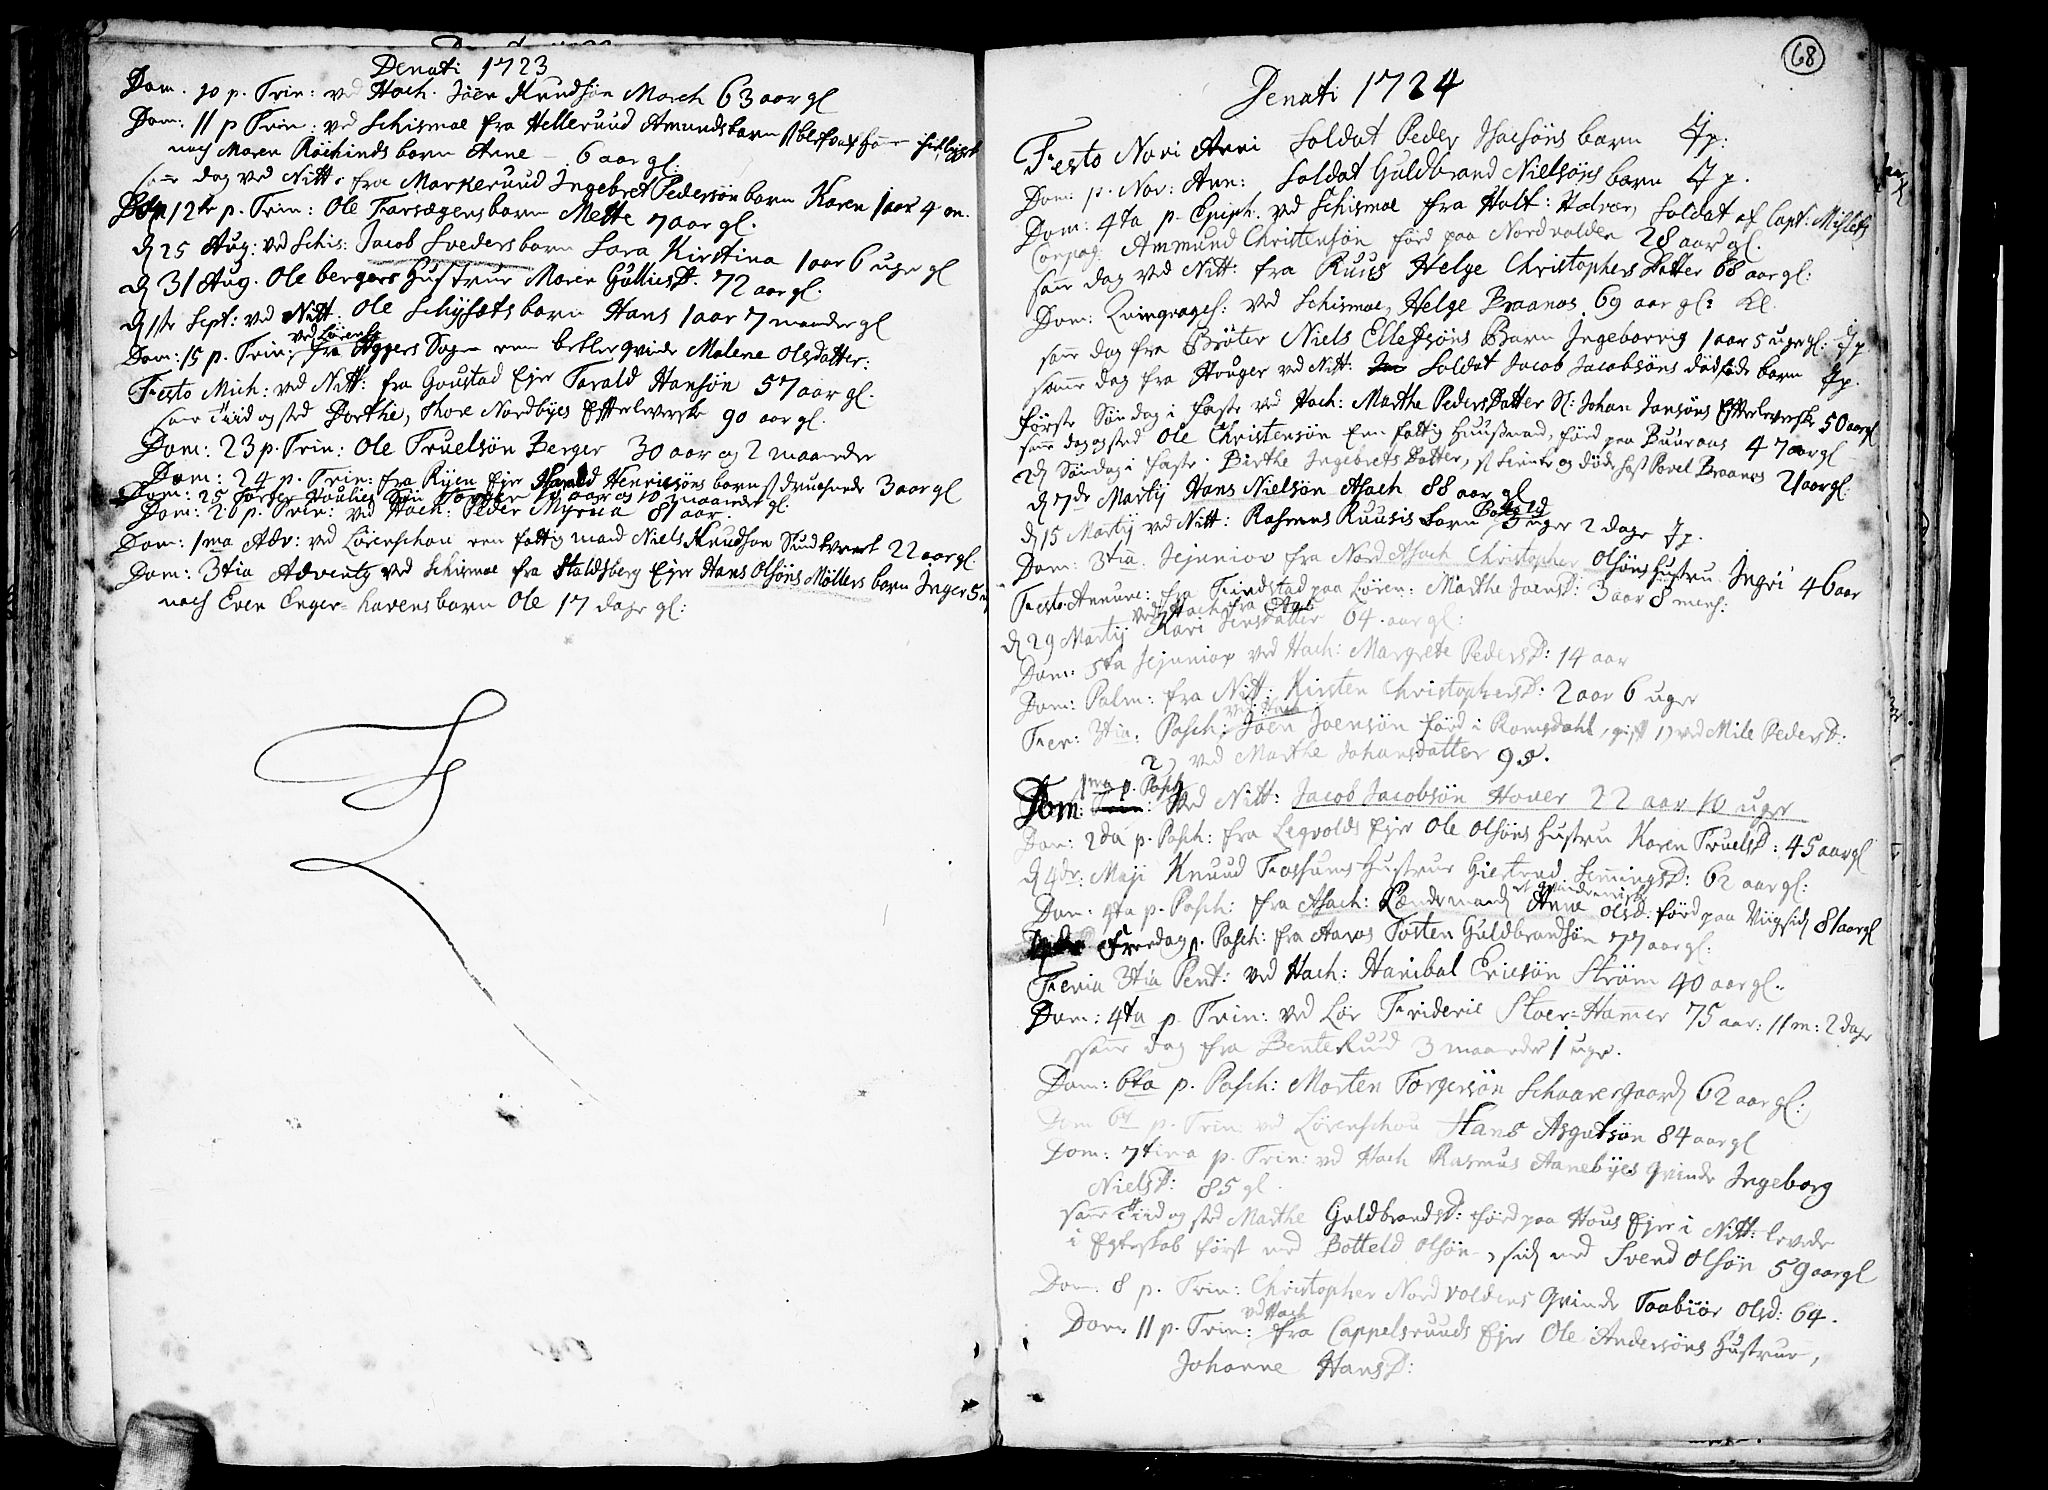 Denati 1723
Dom. 10 p. Trin: ved Hach. Jöen Knudsön March 63 aar gl
Dom: 11 p Trin: ved Schismoe fra Hellerund Amunds barn
noch Maren Röchinds barn Anne - 6 aar gl:
dag ved Nitt. fra Markeruud Ingebret Pedersön barn Karen 1 aar 4 m.
12te p. Trin: Ole Farsægens barn Mette 7 aar gl.
d 25 Aug: ved Schis: Jacob Sveders barn Sara Kirstina 1 aar 6 uger gl
d 31 Aug. Ole bergers Hustrue Maren GulliesD. 72 aar gl.
d 1ste Sept: ved Nitt: Ole Schysets barn Hans 1 aar 7 maaneder gl
ved Lörensk:
Dom: 15 p. Trin: fra Aggers Sogn een betler qvinde Malene Olsdatter:
Festo Mich: ved Nitt: fra Goustad Ejer Farald Hansön 57 aar gl.
samme Tiid og sted Dorthe, Thore Nordbyes Efterleverske 90 aar gl.
Dom: 23 p. Trin: Ole Truelsön Berger 30 aar og 2 maaneder
Dom: 24 p. Trin: fra Ryen Ejer Harald Henricsöns barn 3 aar gl
Dom: 25 Sön 10 maaneder gl.
Dom: 26 p. Trin: ved Hach: Peder Myrera 81 aar
Dom: 1ma Adv: ved Lörenschou een fattig mand Niels Knudsøn 22 aar gl
Dom: 3tia Adventg ved Schismoe fra Staldsberg Ejer Hans Olsöns Möllers barn Inger 5
noch Even Enger-havens barn Ole 17 dage gl:
68
Denati 1724
Festo Novi Anni Soldat Peder Isacsöns barn Jp:
Dom: p. Nov: Ann: Soldat Guldbrand Nielsöns barn Jp.
Dom: 4ta p. Epiph. ved Schismoe fra Holt: Halvor, Soldat af Capt:
Compag: Ammund Christensön förd paa Nordvalden 28 aar gl.
samme dag ved Nitt: fra Ruus Helge Christophers Datter 68 aar gl:
Dom: Qvinqvages: ved Schismoe, Helge Braanas 69 aar gl:
samme dag fra Bröter Niels Ellefsöns Barn Ingeborrig 1 aar 5 uger gl: Jp.
samme dag fra Houger ved Nitt: Soldat Jacob Jacobsöns dödföde barn Jp.
förste Söndag i faste ved Hach: Marthe Peders Datter Sl: Johan Jansöns Efterleverske 50 aar gl
samme dag og sted Ole Christensön Een fattig Huusmand, förd paa Buuraas 47 aar gl
2d Söndag i faste: Birthe Ingebrets Datter, Povel Braanas 21 aar gl.
d 7de Martij Hans Nielsön Asach 88 aar gl
d 15 Martij ved Nitt: Rasmus Ruusis barn 3 uger 2 dage Jp.
Dom: 3tia. Jejuniov fra Nord Asach Christopher Olsöns Hustru Ingri 46 aar
Festo Annunc: fra Findstad paa Lören: Marthe JoensD: 3 aar 8 mens:
ved Hach fra
d 29 Martij Kari Jensdatter 64 aar gl:
Dom: 5ta Jejuniov ved Hach: Margrete PedersD: 14 aar
Dom: Palm: fra Nitt: Kirsten ChristophersD: 2 aar 6 uger
ved Hach
Fer: 3tia: Pasch: Joen Joensön förd i Romsdahl, gift 1) ved Mile PedersD:
2) ved Marthe Johansdatter 90.
1ma p. Pasch
Dom: ved Nitt: Jacob Jacobsön Hover 22 aar 10 uger
Dom: 2da p. Pasch: fra Leqvolds Ejer Ole Olsöns Hustru Karen TruelsD: 45 aar gl
d 4de: Maji Knuud Fossums Hustrue Giertrud LemmingsD: 62 aar gl:
Dom: 4ta p. Pasch: fra Asach: Anne olsd. förd paa Viigsid 81 aar gl
Fredag p. Pasch: fra Aaros Tosten Guldbrandsön 77 aar gl:
Feria 3tia Pent: ved Hach: Hanibal Ericsön Ström 40 aar gl:
Dom: 4ta p. Trin: ved Lör Frideric Stoer-Hamer 75 aar: 11 m: 2 dage
samme dag fra BenteRuud 3 maaneder 1 uge.
Dom: 6ta p. Pasch: Morten Torgersön Schaarergaard 62 aar gl:
Dom 6te p. Trin: ved Lörenschou Hans Asgutsön 84 aar gl
Dom: 7tima p. Trin: ved Hach Rasmus Aanebyes Qvinde Ingeborg
NielsD: 85 gl.
samme Tiid og sted Marthe GuldbrandsD: förd paa Hous Ejer i Nitt: levede
i Egteskab först med Botteld Olsön, siden med Svend Olsön 59 aar gl
Dom. 8 p. Trin: Christopher Nordvoldens Qvinde Taabiör Olsd: 64.
ved Hach
Dom 11 p. Trin: fra Cappelsruuds Ejer Ole Andersöns Hustrue,
Johanne HansD: